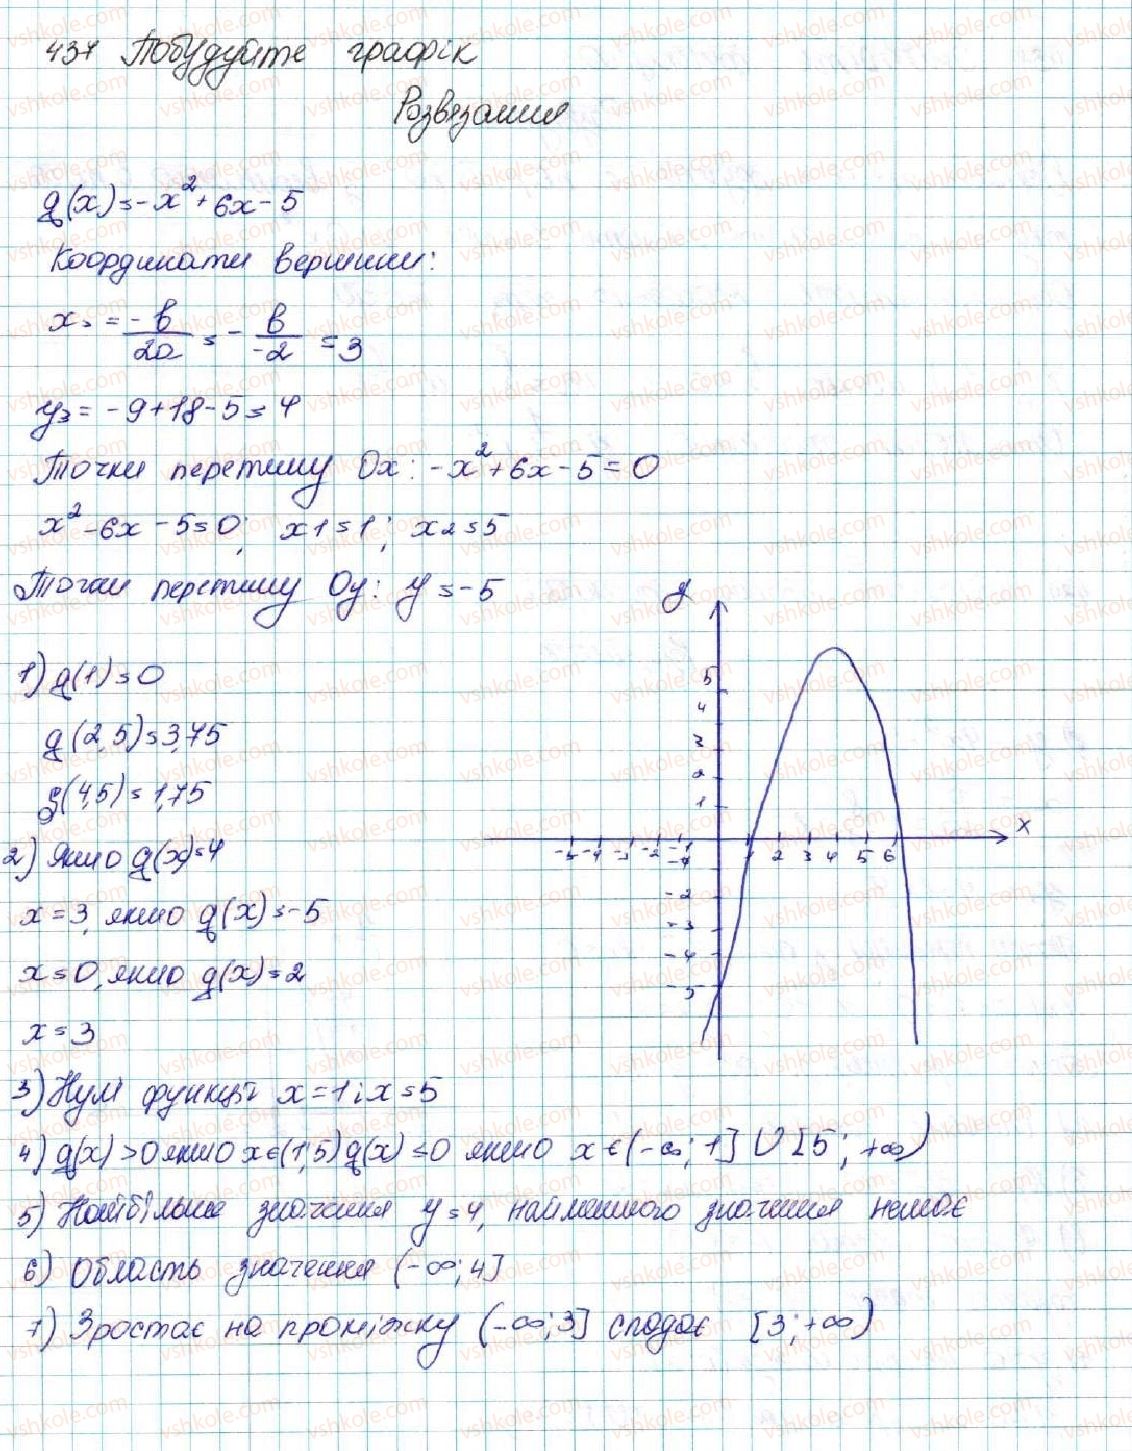 437 Побудуйте графік
Розвязання
g(x)=-x²+6x-5
Координати вершини:
x₃ = -b/2a = - 6/-2 = 3
y₃ = -9+18-5=4
Точки перетину Ox: -x²+6x-5=0
x²-6x-5=0; x1=1; x2=5
Точки перетину Oy: y=-5
1) g(1)=0
g(2,5)=3,75
g(4,5)=1,75
2) Якщо g(x)=4
x=3, якщо g(x)=-5
x=0, якщо g(x)=2
x=3
y
5
4
3
2
1
x
-5 -4 -3 -2 -1 1 2 3 4 5 6
-1
-2
-3
-4
-5
3) Нулі функції x=1 і x=5
4) g(x)>0 якщо x∈(1;5) g(x)≤0 якщо x∈(-∞;1]∪[5;+∞)
5) Найбільше значення y=4, найменшого значення немає
6) Область значення (-∞;4]
7) Зростає на проміжку (-∞;3] спадає [3;+∞)